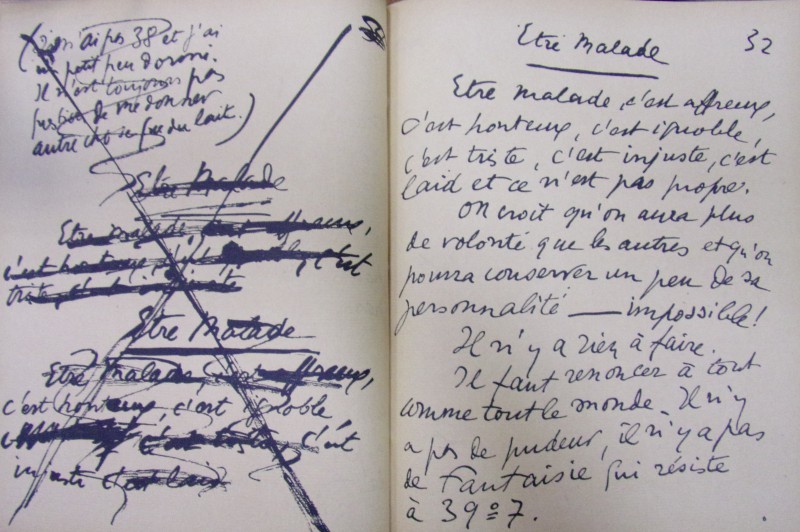 n'ai pas 38 et j'ai
un petit peu dormi.
Il n'est toujours pas
question de me donner
autre chose que du lait.)
Etre Malade
Etre malade, c'est affreux,
c'est honteux, c'est ignoble, c'est
triste, c'est injuste
Etre Malade
Etre malade, c'est affreux,
c'est honteux, c'est ignoble
c'est triste, c'est
injuste c'est laid
Etre Malade 32
Etre malade, c'est affreux,
c'est honteux, c'est ignoble,
c'est triste, c'est injuste, c'est
laid et ce n'est pas propre.
On croit qu'on aura plus
de volonté que les autres et qu'on
pourra conserver un peu de sa
personnalité — impossible!
Il n'y a rien à faire.
Il faut renoncer à tout
comme tout le monde. Il n'y
a pas de pudeur, il n'y a pas
de Fantaisie qui résiste
à 39º7.